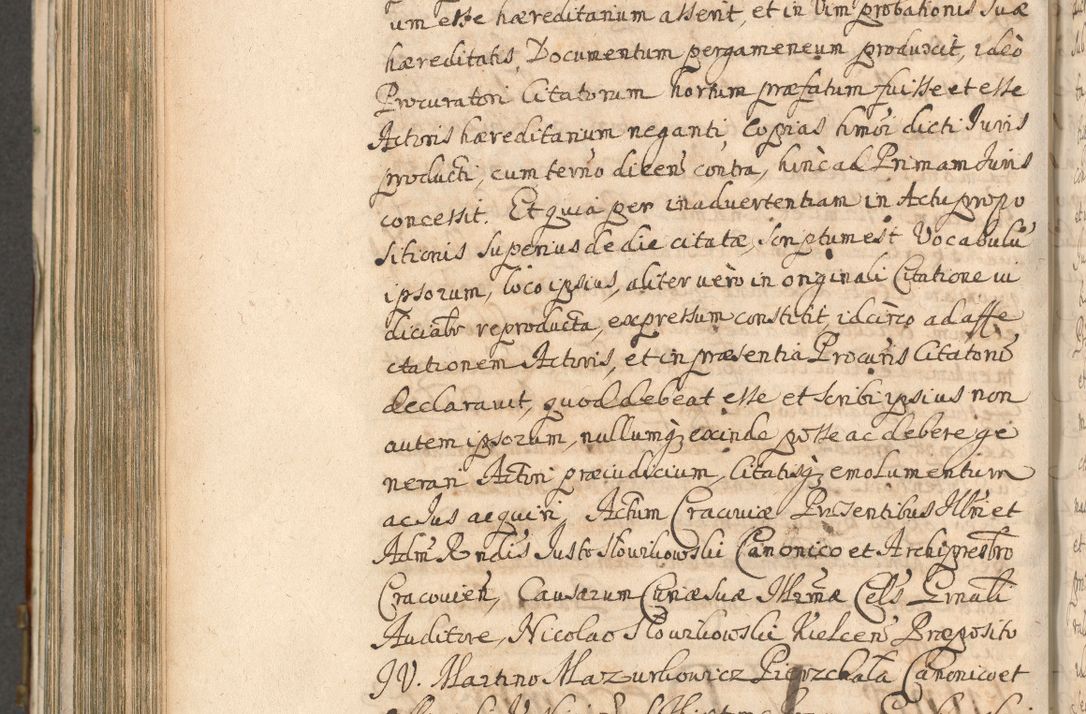 um esse hæreditarium asserit, et in Vim probationis suæ
hæreditatis, Documentum pergameneum produxit, ideò
Procuratori Citatorum hortum præfatum fuisse et esse
Actoris hæreditarium neganti copias hmõi dicti Juris
producti, cum termõ dicen contra, hinc ad Primam Juris
concessit. Et quia per inadvertentiam in Actu propo
sitionis superius de die citatæ, scriptum est Vocabulũ
ipsorum, loco ipsius, aliter verò in originali Citatione iu
diciabr reproducta, expressum constitit, idcirco ad affe
ctationem Actoris, et in præsentia Procuris Citatoris
declaravit, quod debeat esse et scribi ipsius non
autem ipsorum, nullumq; exinde posse ac debere ge
nerari Actori præiudicium, Citatisq; emolumentum
ac Jus acquiri. Actum Cracoviæ Præsentibus Illri et
Adm Rndis Justo Słowikowski Canonico et Archipresbro
Cracovien, Causarum Curiæ suæ Illrmæ Cels Prnali
Auditore, Nicolao Słowikowski Kielcen Præposito
JV. Martino Mazurkowicz Pierzchała Canonico et